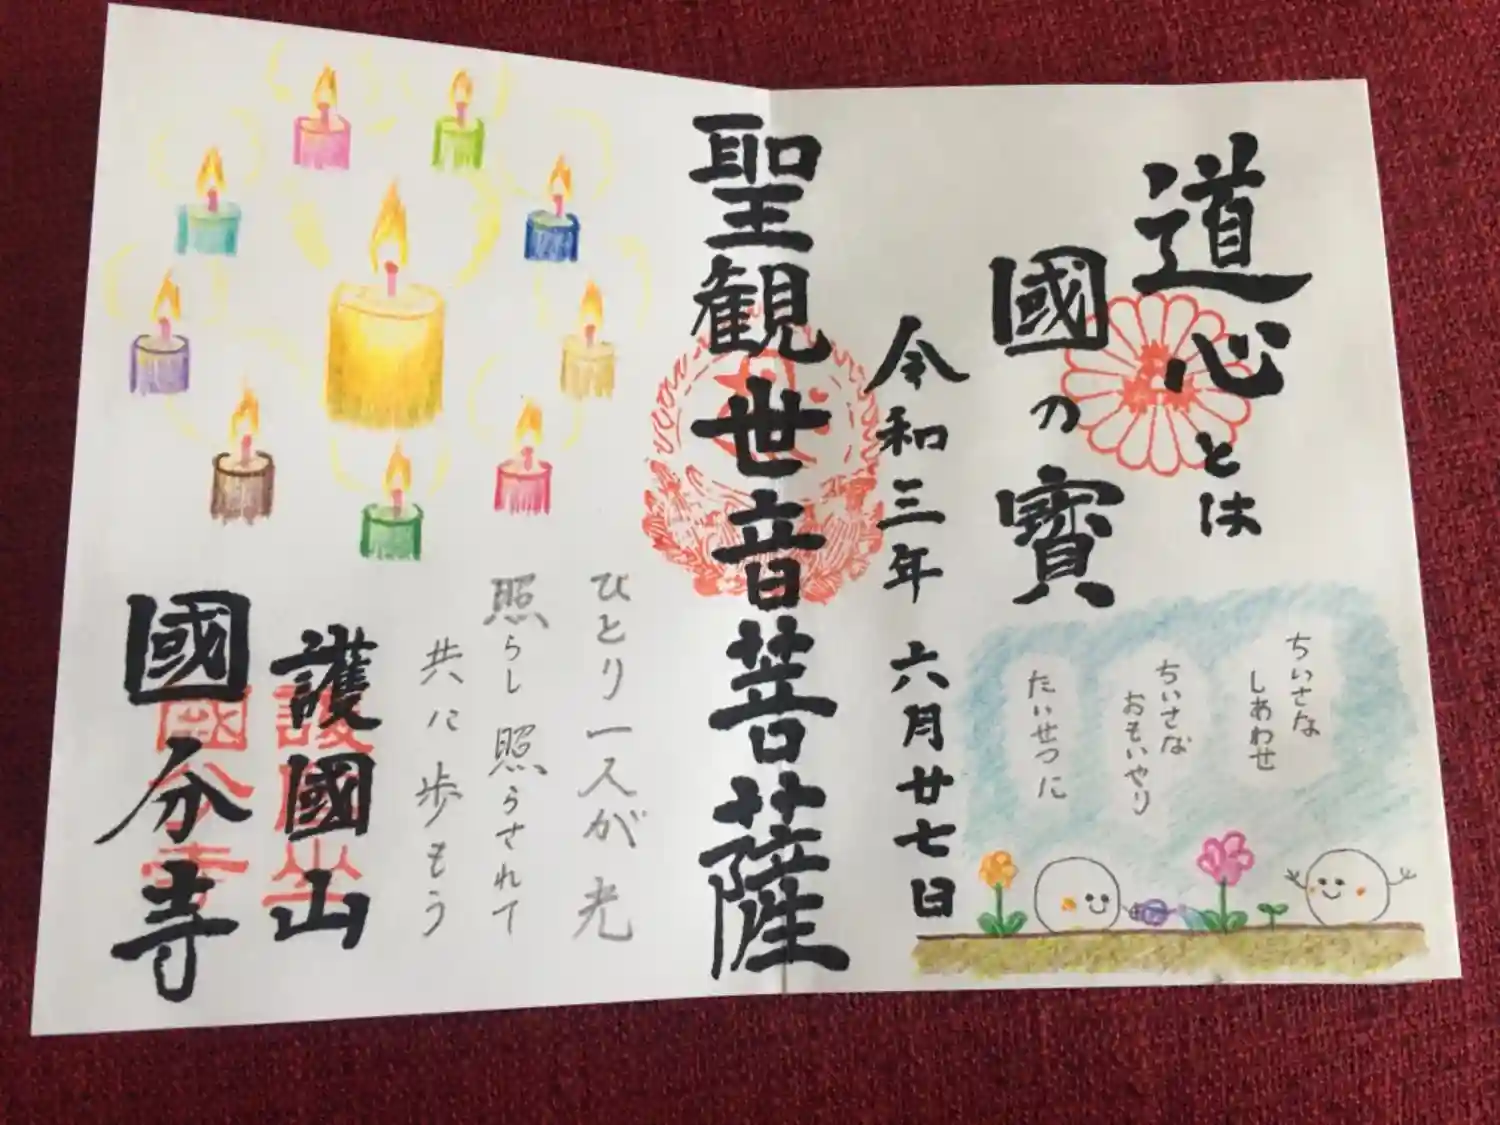 道心とは
國の寶
令和三年 六月廿七日
聖観世音菩薩
ちいさな
しあわせ
ちいさな
おもいやり
たいせつに
ひとり一人が光
照らし照らされて
共に歩もう
護國山
國分寺